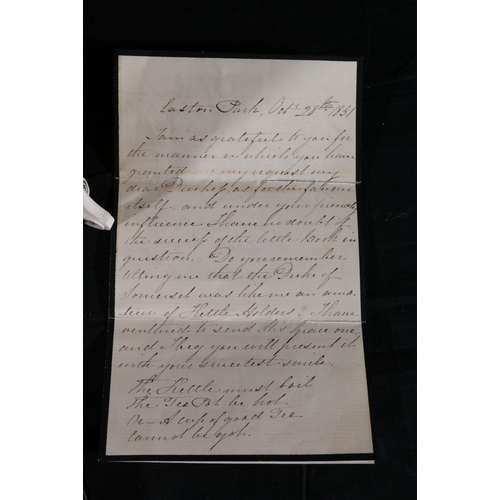 Easton Park, Octr. 28th 1851
I am as grateful to you for
the manner in which you have
granted me my request my
dear Duchess, as for the favour
itself, and under your friendly
influence I have no doubt of
the success of the little Book in
question. Do you remember
telling me that the Duke of
Somerset was like me an ama-
teur of Kettle Holders? I have
ventured to send His Grace one
and I beg you will present it
with your sweetest smile.
The Kettle must boil
The Tea Pot be hot
Or A cup of good Tea
Cannot be got.